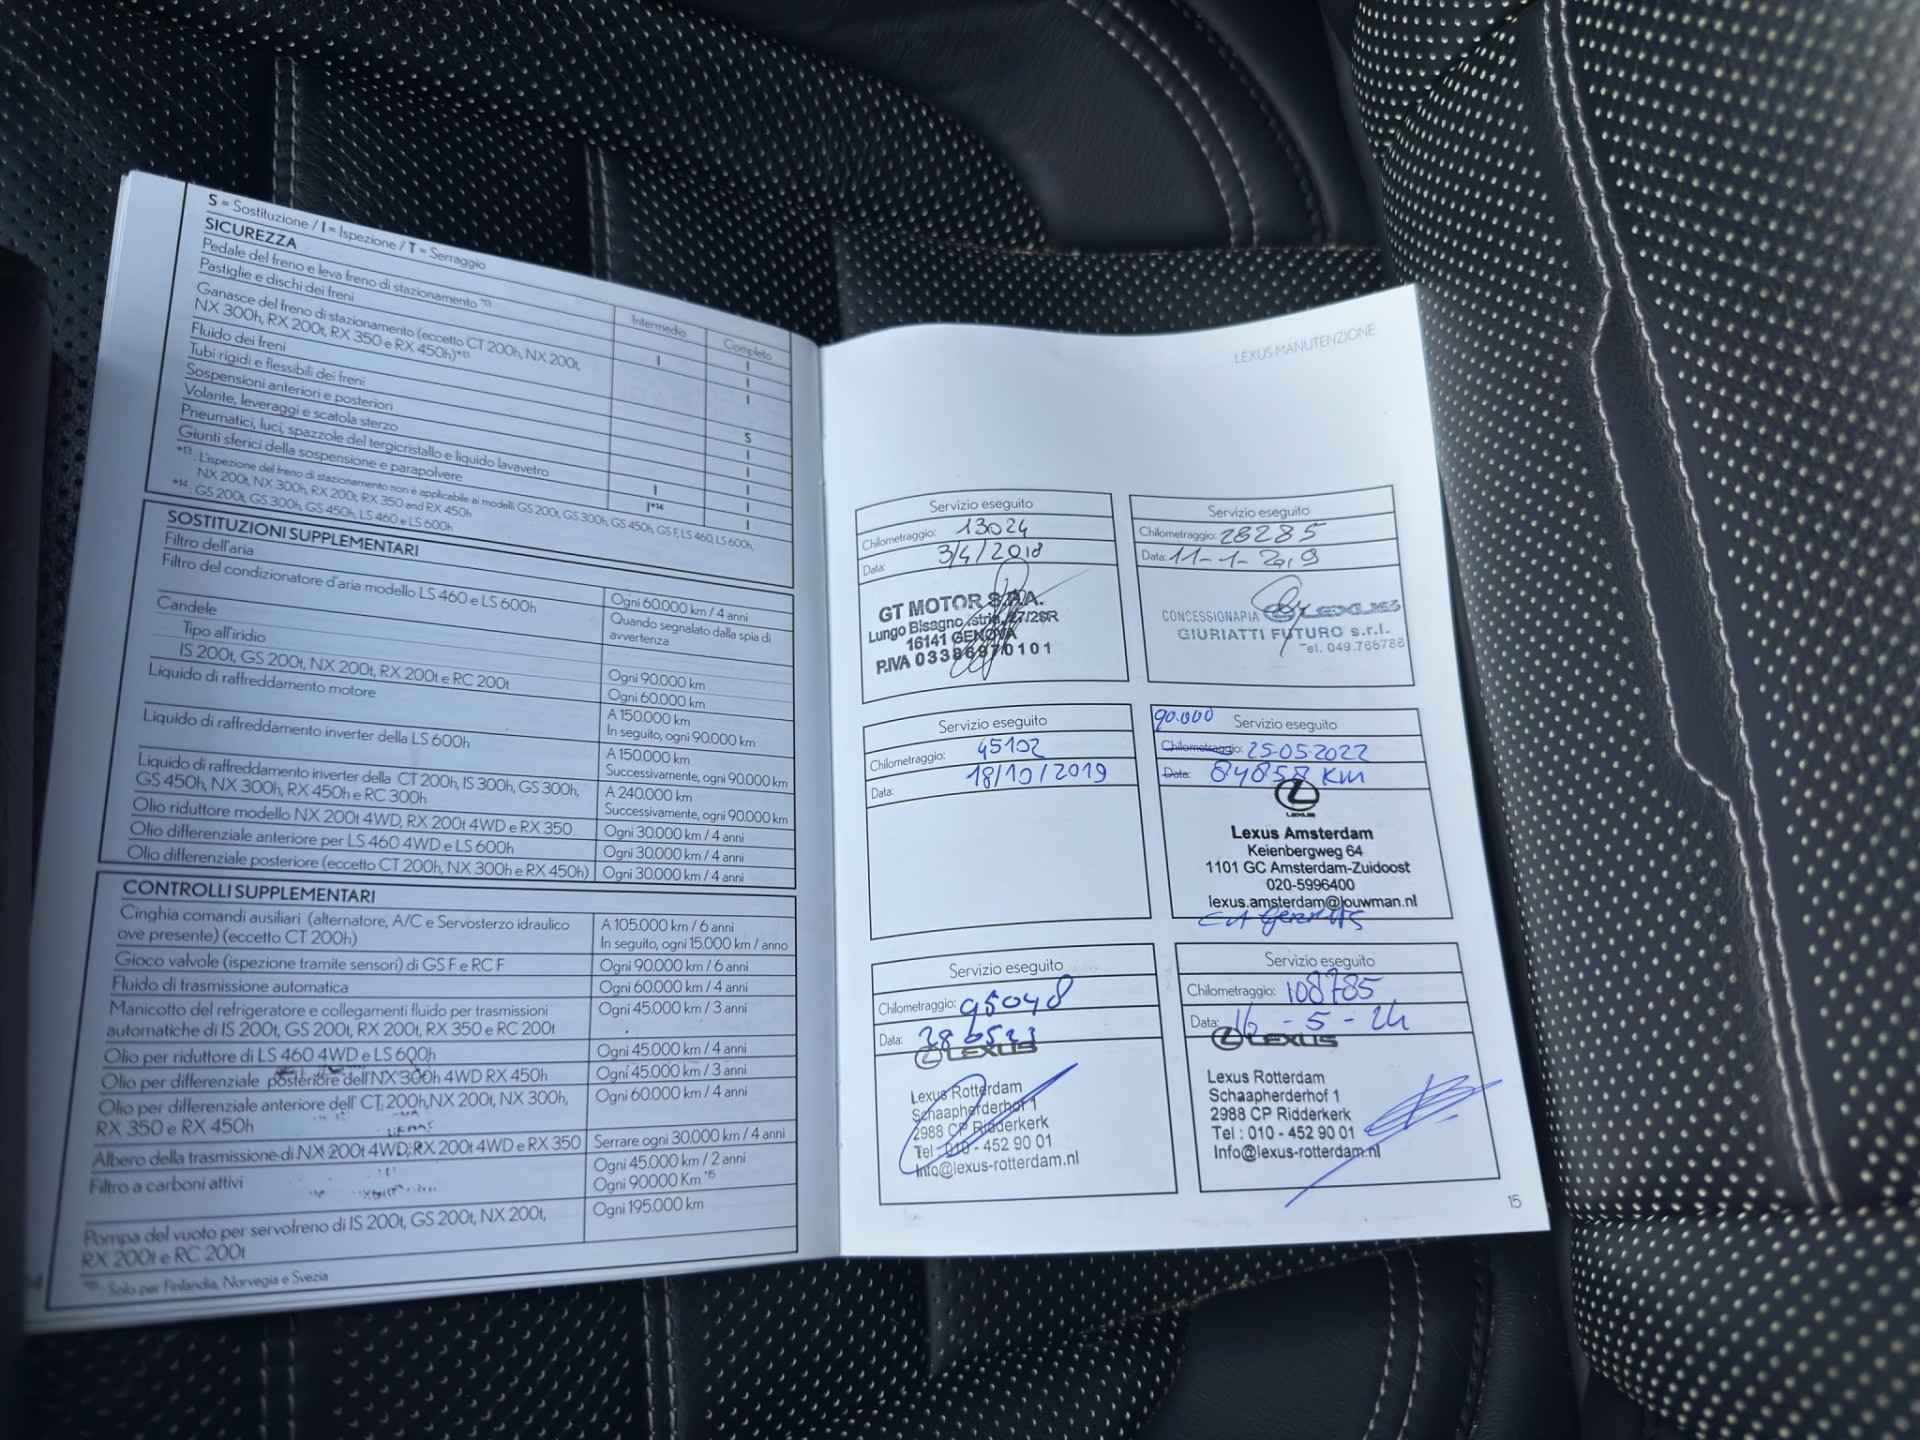 S = Sostituzione / I = Ispezione / T = Serraggio
SICUREZZA
Intermedio
Completo
Pedale del freno e leva freno di stazionamento *13
I
I
Pastiglie e dischi dei freni
I
Ganasce del freno di stazionamento (eccetto CT 200h, NX 200t,
NX 300h, RX 200t, RX 350 e RX 450h)*13
I
Fluido dei freni
S
Tubi rigidi e flessibili dei freni
I
Sospensioni anteriori e posteriori
I
Volante, leveraggi e scatola sterzo
I
Pneumatici, luci, spazzole del tergicristallo e liquido lavavetro
I
I
Giunti sferici della sospensione e parapolvere
I*14
I
*13 : L'ispezione del freno di stazionamento non è applicabile ai modelli GS 200t, GS 300h, GS 450h, GS F, LS 460, LS 600h,
NX 200t, NX 300h, RX 200t, RX 350 and RX 450h
*14 : GS 200t, GS 300h, GS 450h, LS 460 e LS 600h
SOSTITUZIONI SUPPLEMENTARI
Filtro dell'aria
Ogni 60.000 km / 4 anni
Filtro del condizionatore d'aria modello LS 460 e LS 600h
Quando segnalato dalla spia di
avvertenza
Candele
Tipo all'iridio
Ogni 90.000 km
IS 200t, GS 200t, NX 200t, RX 200t e RC 200t
Ogni 60.000 km
Liquido di raffreddamento motore
A 150.000 km
In seguito, ogni 90.000 km
Liquido di raffreddamento inverter della LS 600h
A 150.000 km
Successivamente, ogni 90.000 km
Liquido di raffreddamento inverter della CT 200h, IS 300h, GS 300h,
GS 450h, NX 300h, RX 450h e RC 300h
A 240.000 km
Successivamente, ogni 90.000 km
Olio riduttore modello NX 200t 4WD, RX 200t 4WD e RX 350
Ogni 30.000 km / 4 anni
Olio differenziale anteriore per LS 460 4WD e LS 600h
Ogni 30.000 km / 4 anni
Olio differenziale posteriore (eccetto CT 200h, NX 300h e RX 450h)
Ogni 30.000 km / 4 anni
CONTROLLI SUPPLEMENTARI
Cinghia comandi ausiliari (alternatore, A/C e Servosterzo idraulico
ove presente) (eccetto CT 200h)
A 105.000 km / 6 anni
In seguito, ogni 15.000 km / anno
Gioco valvole (ispezione tramite sensori) di GS F e RC F
Ogni 90.000 km / 6 anni
Fluido di trasmissione automatica
Ogni 60.000 km / 4 anni
Manicotto del refrigeratore e collegamenti fluido per trasmissioni
automatiche di IS 200t, GS 200t, RX 200t, RX 350 e RC 200t
Ogni 45.000 km / 3 anni
Olio per riduttore di LS 460 4WD e LS 600h
Ogni 45.000 km / 4 anni
Olio per differenziale posteriore dell'NX 300h 4WD RX 450h
Ogni 45.000 km / 3 anni
Olio per differenziale anteriore dell' CT 200h, NX 200t, NX 300h,
RX 350 e RX 450h
Ogni 60.000 km / 4 anni
Albero della trasmissione di NX 200t 4WD, RX 200t 4WD e RX 350
Serrare ogni 30.000 km / 4 anni
Filtro a carboni attivi
Ogni 45.000 km / 2 anni
Ogni 90000 Km *15
Pompa del vuoto per servofreno di IS 200t, GS 200t, NX 200t,
RX 200t e RC 200t
Ogni 195.000 km
*15 : Solo per Finlandia, Norvegia e Svezia
LEXUS MANUTENZIONE
Servizio eseguito
Chilometraggio: 13024
Data: 3/4/2018
GT MOTOR S.P.A.
Lungo Bisagno Istria, 27/29R
16141 GENOVA
P.IVA 03386970101
Servizio eseguito
Chilometraggio: 28285
Data: 11-1-2019
CONCESSIONARIA LEXUS
GIURIATTI FUTURO s.r.l.
Tel. 049.766788
Servizio eseguito
Chilometraggio: 45102
Data: 18/10/2019
90.000 Servizio eseguito
Chilometraggio: 25-05-2022
Data: 84858 KM
LEXUS
Lexus Amsterdam
Keienbergweg 64
1101 GC Amsterdam-Zuidoost
020-5996400
lexus.amsterdam@louwman.nl
Servizio eseguito
Chilometraggio: 95048
Data:
LEXUS
Lexus Rotterdam
Schaapherderhof 1
2988 CP Ridderkerk
Tel : 010 - 452 90 01
Info@lexus-rotterdam.nl
Servizio eseguito
Chilometraggio: 108785
Data: 16 - 5 - 24
LEXUS
Lexus Rotterdam
Schaapherderhof 1
2988 CP Ridderkerk
Tel : 010 - 452 90 01
Info@lexus-rotterdam.nl
15